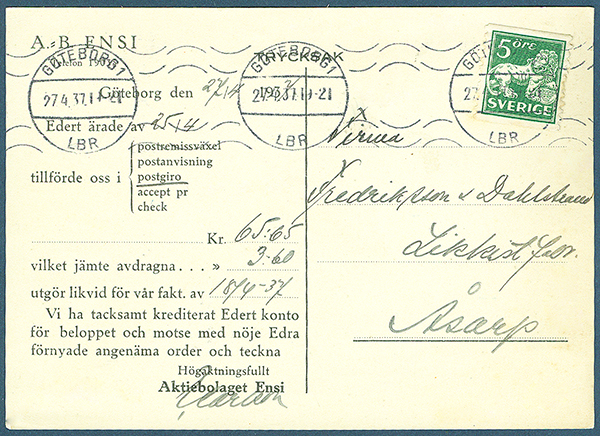 A.-B. ENSI
Telefon
TRYCKSAK
Göteborg den 27/4 1937
Edert ärade av 25/4
tillförde oss i
postremissväxel
postanvisning
postgiro
accept pr
check
Kr. 65:65
vilket jämte avdragna . . . » 3-60
utgör likvid för vår fakt. av 18/4-37
Vi ha tacksamt krediterat Edert konto
för beloppet och motse med nöje Edra
förnyade angenäma order och teckna
Högaktningsfullt
Aktiebolaget Ensi
GÖTEBORG 1
27.4.37.
LBR
GÖTEBORG 1
27.4.37. -21
LBR
LBR
5 ÖRE
SVERIGE
Firma
Fredriksson & Dahlstrand
Likkist fabr.
Åsarp